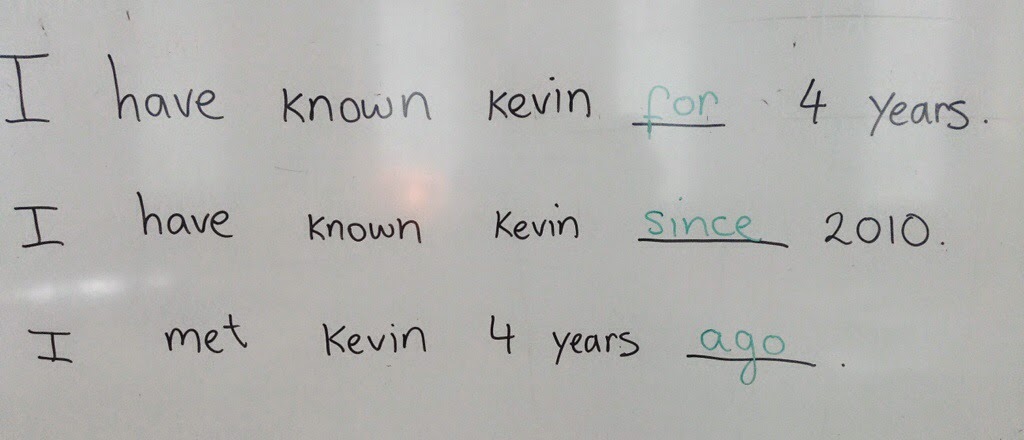 I have known Kevin for 4 years.
I have known Kevin since 2010.
I met Kevin 4 years ago.